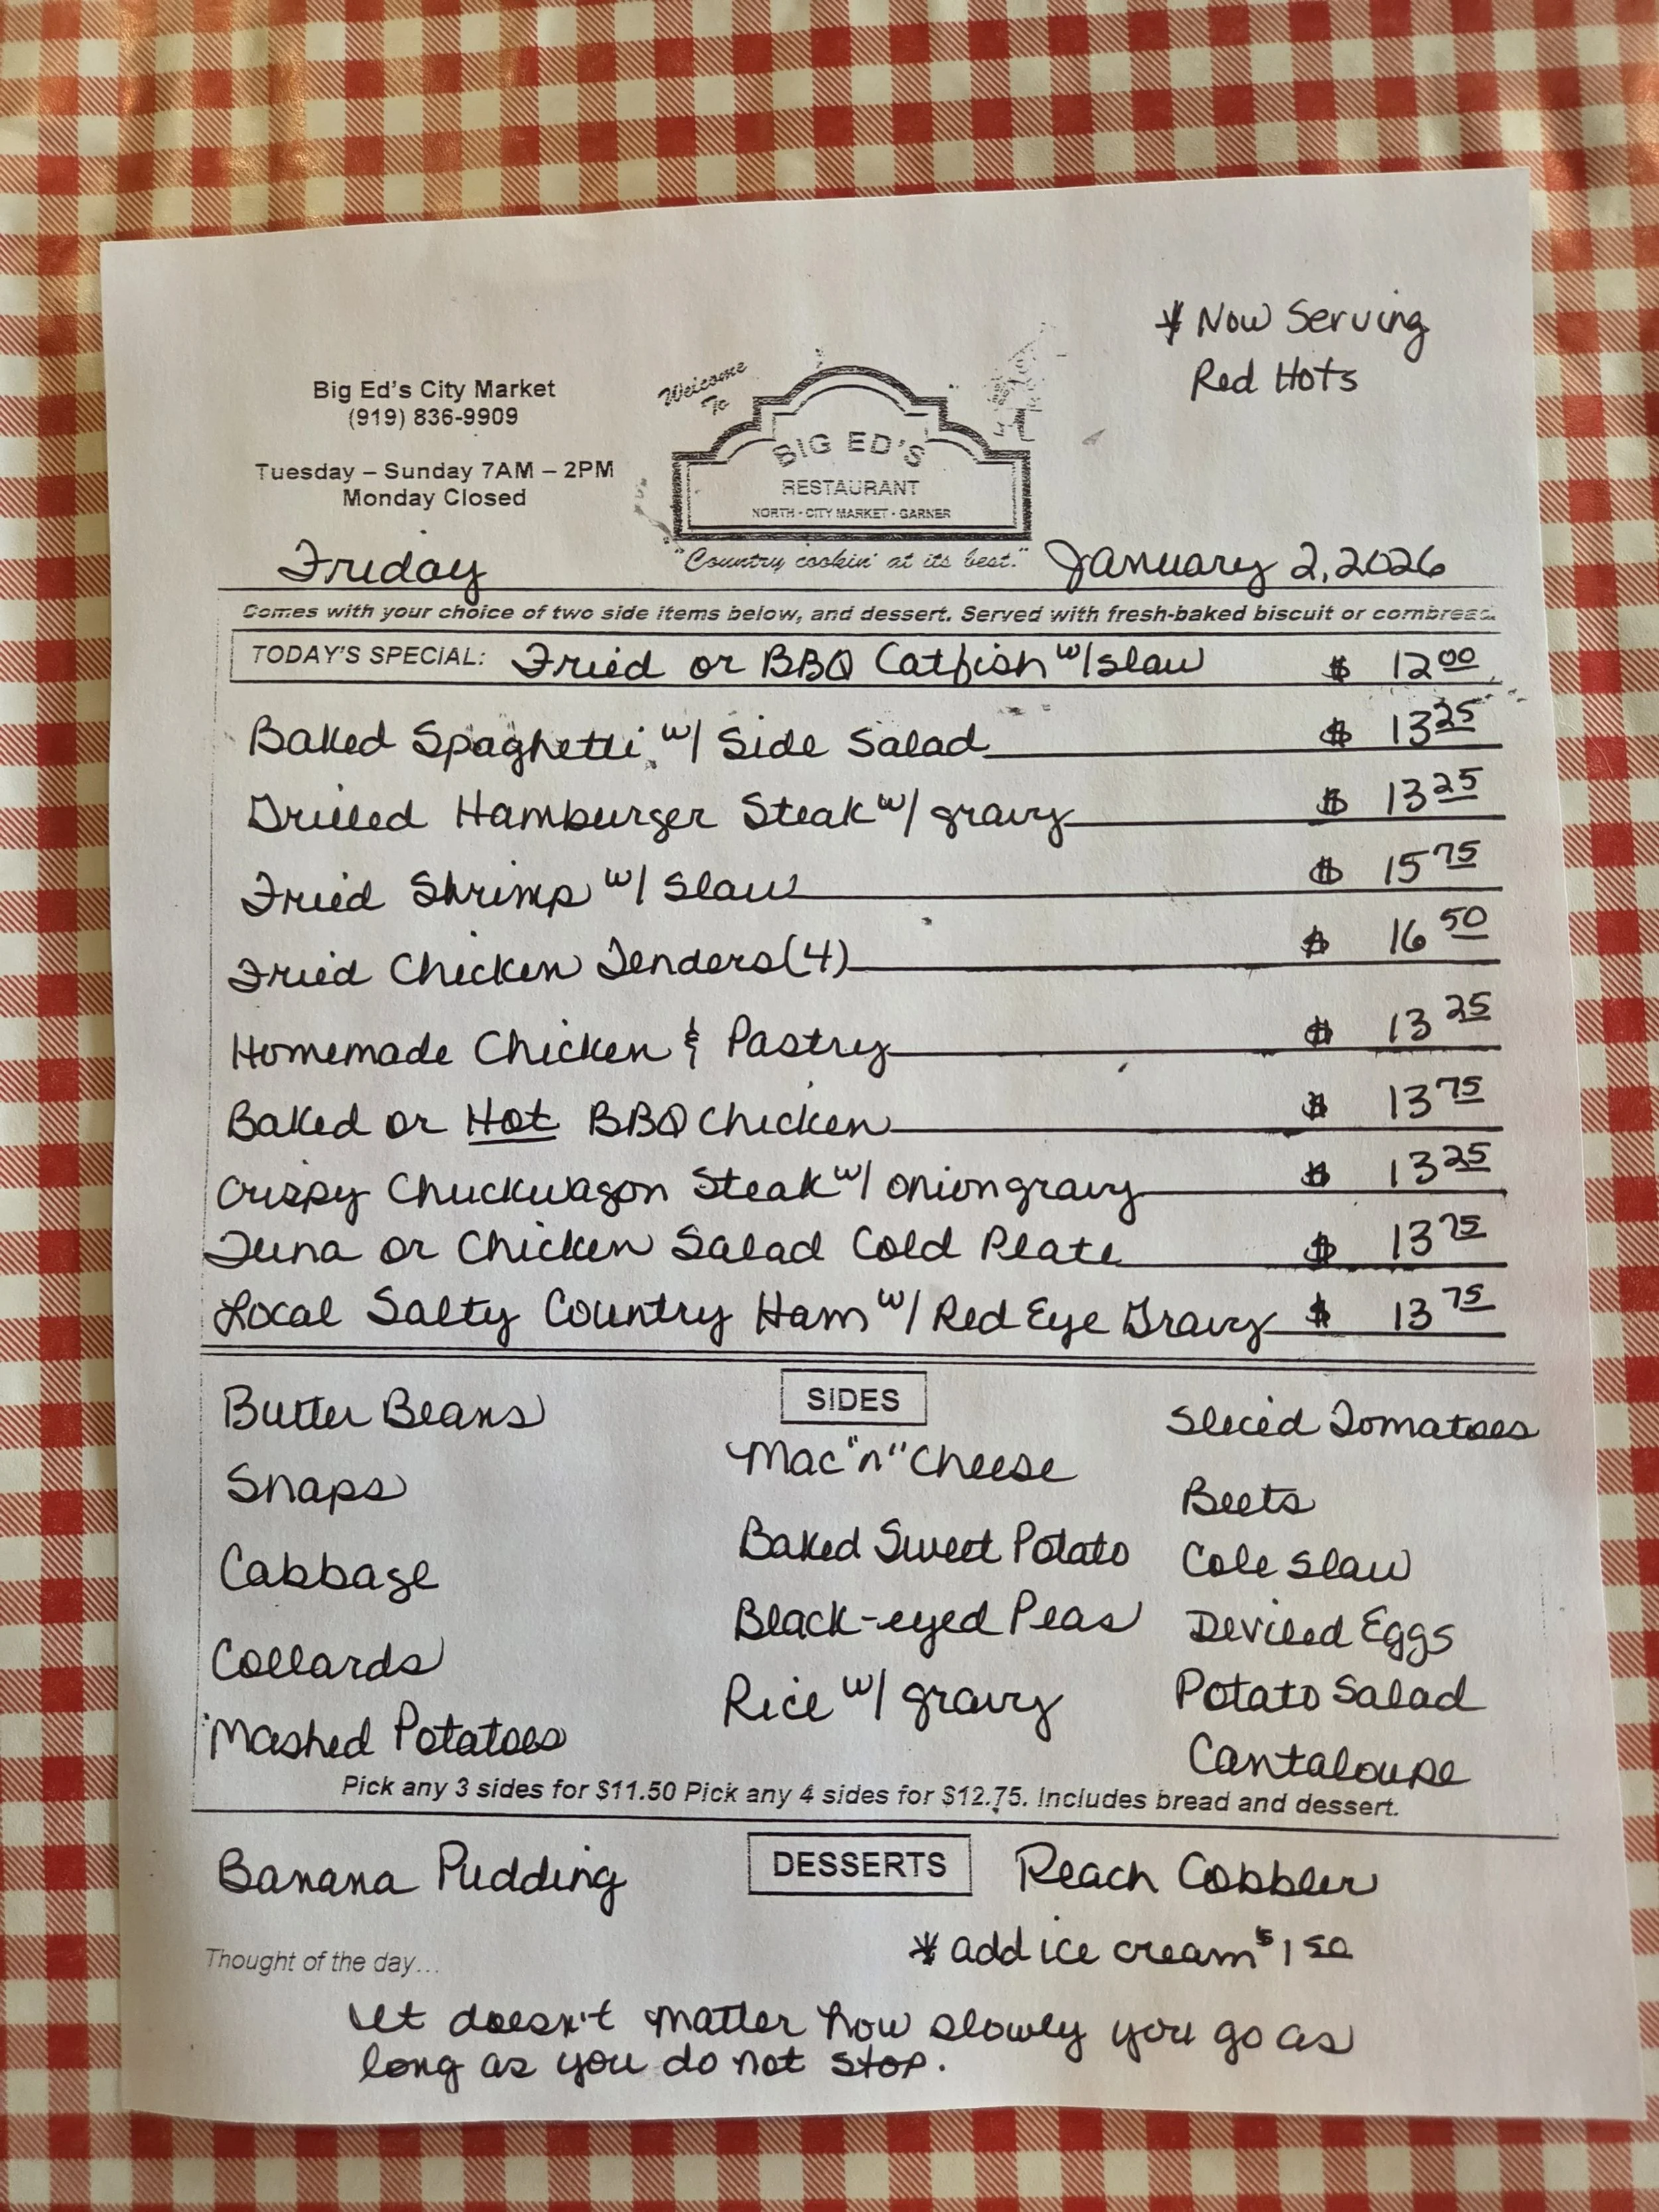 * Now Serving
Red Hots
Big Ed's City Market
(919) 836-9909
Tuesday – Sunday 7AM – 2PM
Monday Closed
Welcome
To
BIG ED'S
RESTAURANT
NORTH - CITY MARKET - GARNER
"Country cookin' at its best."
Friday
January 2, 2026
Comes with your choice of two side items below, and dessert. Served with fresh-baked biscuit or cornbread.
TODAY'S SPECIAL: Fried or BBQ Catfish w/ slaw $ 12.00
Baked Spaghetti w/ Side Salad $ 13.25
Grilled Hamburger Steak w/ gravy $ 13.25
Fried Shrimp w/ Slaw $ 15.75
Fried Chicken Tenders (4) $ 16.50
Homemade Chicken & Pastry $ 13.25
Baked or Hot BBQ Chicken $ 13.75
Crispy Chuckwagon Steak w/ onion gravy $ 13.25
Tuna or Chicken Salad Cold Plate $ 13.75
Local Salty Country Ham w/ Red Eye Gravy $ 13.75
SIDES
Butter Beans
Snaps
Cabbage
Collards
Mashed Potatoes
Mac "n" Cheese
Baked Sweet Potato
Black-eyed Peas
Rice w/ gravy
Sliced Tomatoes
Beets
Cole Slaw
Deviled Eggs
Potato Salad
Cantaloupe
Pick any 3 sides for $11.50 Pick any 4 sides for $12.75. Includes bread and dessert.
DESSERTS
Banana Pudding
Peach Cobbler
* add ice cream $1.50
Thought of the day...
It doesn't matter how slowly you go as
long as you do not stop.